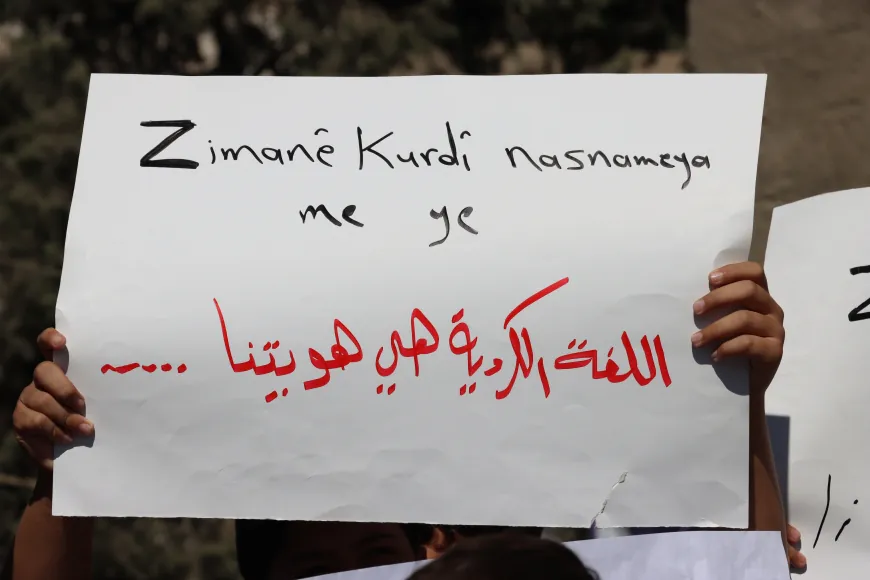 Zimanê Kurdî nasnameya
me ye
اللغة الكردية هي هويتنا ....~